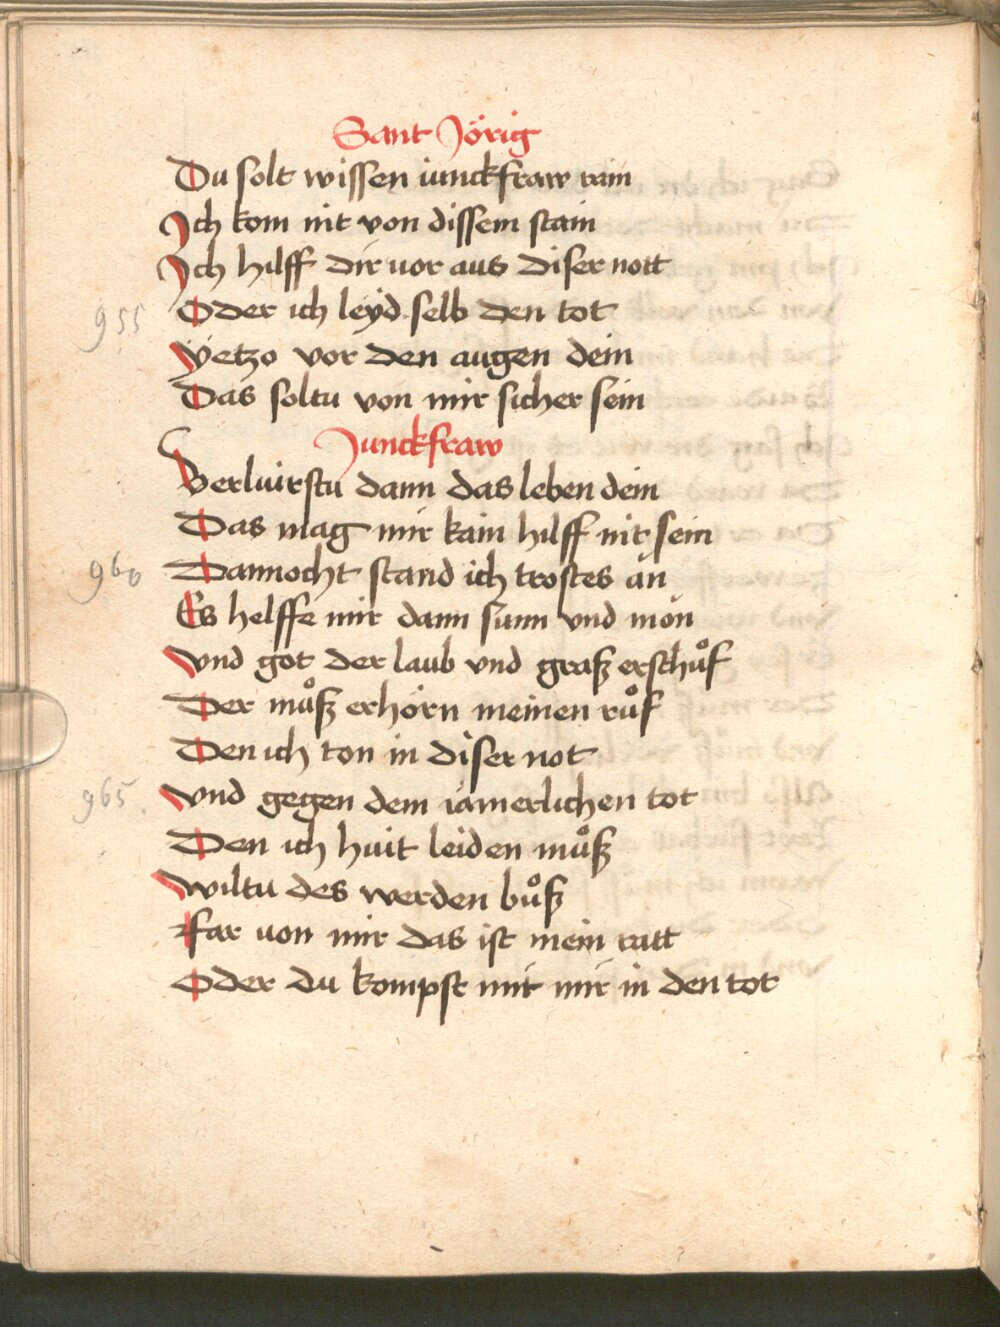 Sant Jörig
Du solt wissen iunckfraw rain
Ich kom nit von dissem stain
Ich hilff dir uor aus diser nott
955 Oder ich leyd selb den tot
Yetzo vor den augen dein
Das soltu von mir sicher sein
Junckfraw
Verluirstu dann das leben dein
Das mag mir kain hilff nit sein
960 Dannocht stand ich trostes än
Es helffe mir dann sunn vnd mön
Vnd got der laub vnd graß erschuͦf
Der muͦß erhörn meinen ruͦf
Den ich ton in diser not
965 Vnd gegen dem iämerlichen tot
Den ich huit leiden muͦß
Wiltu des werden buͦß
Far uon mir das ist mein ratt
Oder du kompst mit mir in den tot